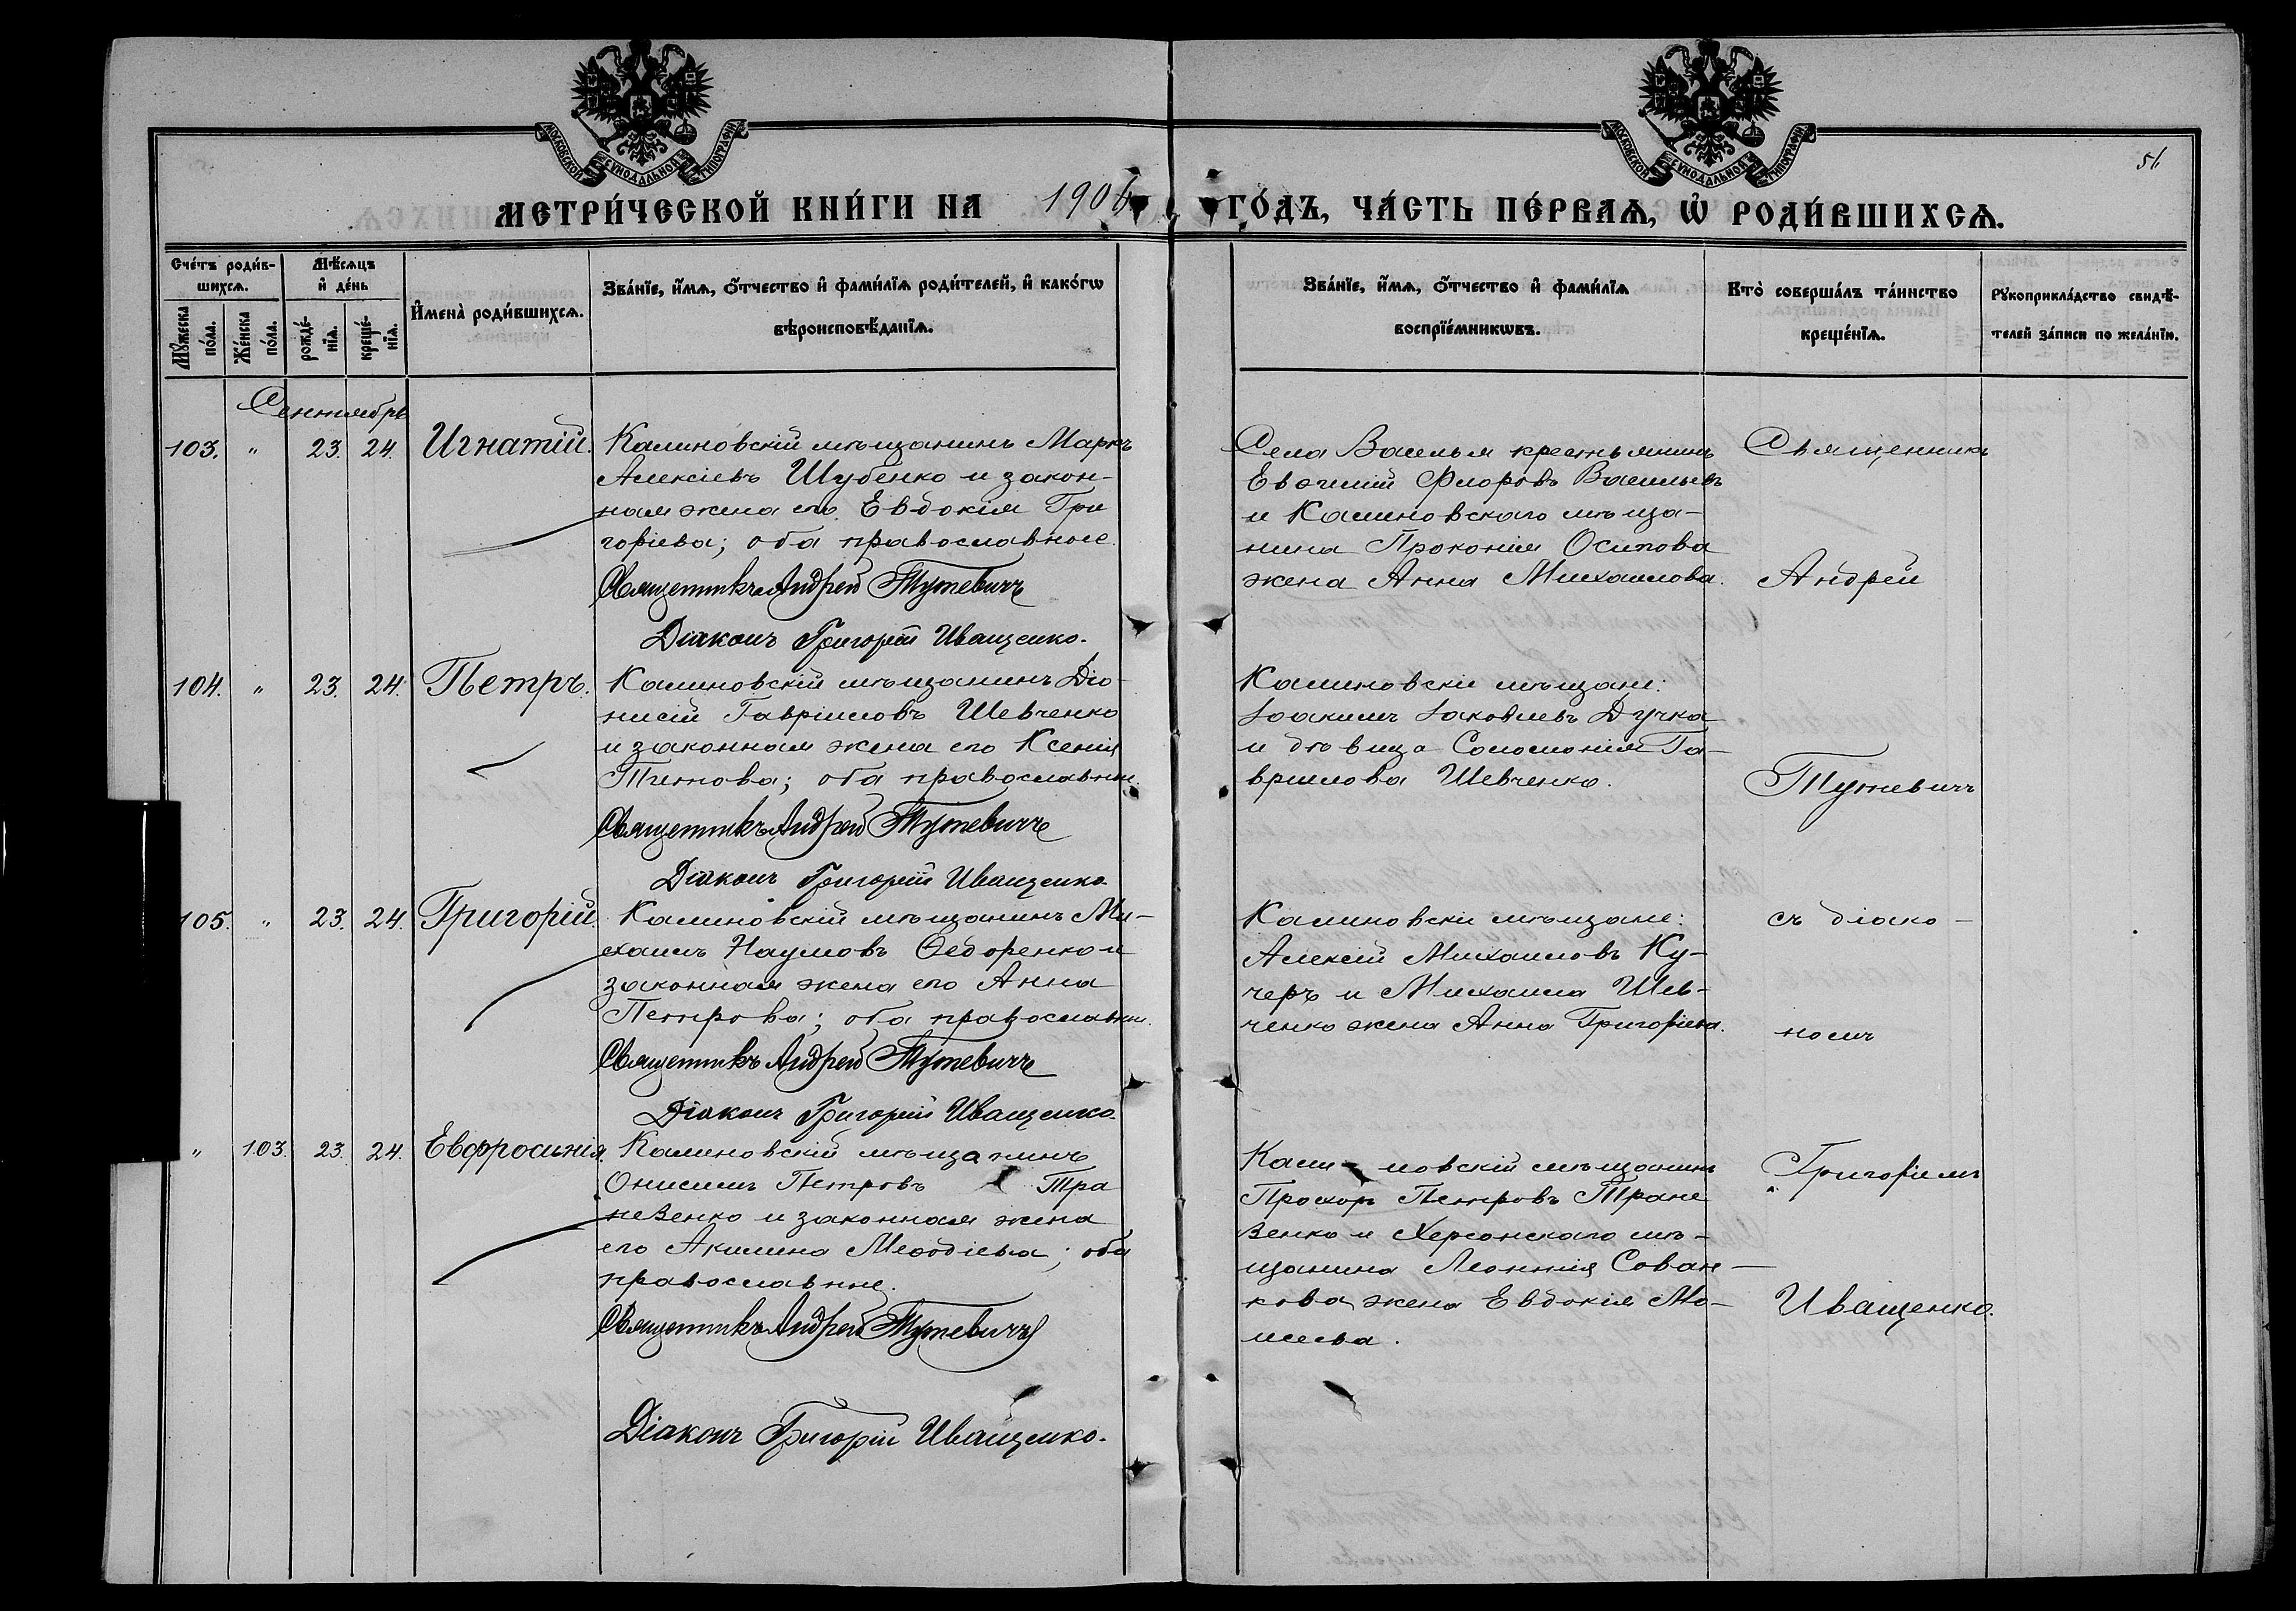 МОСКОВСКОЙ СѴНОДАЛЬНОЙ ТИПОГРАФІИ
МОСКОВСКОЙ СѴНОДАЛЬНОЙ ТИПОГРАФІИ
МЕТРИ́ЧЕСКОЙ КНИ́ГИ НА 1906 ГО́ДЪ, ЧА́СТЬ ПЕ́РВАѦ, Ѡ҆ РОДИ́ВШИХСѦ.
Сче́тъ роди́в-
шихсѧ.
Му́жеска по́ла.
Же́нска по́ла.
Мѣ́сѧцъ
и҆ де́нь
рожде́-
нїѧ.
креще́-
нїѧ.
И҆мена̀ роди́вшихсѧ.
Зва́нїе, и҆́мѧ, ѻ҆́тчество и҆ фами́лїѧ роди́телей, и҆ како́гѡ
вѣроисповѣ́данїѧ.
Зва́нїе, и҆́мѧ, ѻ҆́тчество и҆ фами́лїѧ
воспрїе́мникѡвъ.
Кто̀ соверша́лъ та́инство
креще́нїѧ.
Рꙋкоприкла́дство свидѣ́-
телей за́писи по жела́нїю.
Сентябрь
103. " 23. 24. Игнатій.
Калиновскій мѣщанинъ Маркъ
Алексіевъ Шубенко и закон-
ная жена его Евдокія Гри
горіева; оба православные
Священникъ Андрей Тутевичъ
Діаконъ Григорій Иващенко.
Села Василья крестьянинъ
Евѳимій Флоровъ Васильевъ
и Калиновскаго мѣща-
нина Прокопія Осипова
жена Анна Михаилова.
104. " 23. 24. Петръ.
Калиновскій мѣщанинъ Діо-
нисій Гавріиловъ Шевченко
и законная жена его Ксенія
Титова; оба православные.
Священникъ Андрей Тутевичъ
Діаконъ Григорій Иващенко
Калиновскіе мѣщане:
Іоакимъ Іаковлевъ Дучка
и дѣвица Соломонія Га-
вриилова Шевченко.
105. " 23. 24. Григорій.
Калиновскій мѣщанинъ Ми-
хаилъ Наумовъ Ѳедоренко и
законная жена его Анна
Петрова; оба православные.
Священникъ Андрей Тутевичъ
Діаконъ Григорій Иващенко.
Калиновскіе мѣщане:
Алексій Михаиловъ Ку-
черъ и Михаила Шев-
ченко жена Анна Григоріева.
" 103. 23. 24. Евфросинія.
Калиновскій мѣщанинъ
Онисимъ Петровъ Тра
незенко и законная жена
его Акилина Меѳодіева; оба
православные.
Священникъ Андрей Тутевичъ
Діаконъ Григорій Иващенко.
Кали новскій мѣщанинъ
Прохоръ Петровъ Тране
зенко и Херсонскаго мѣ-
щанина Леонтія Сован-
кова жена Евдокія Мо-
исеева.
Священникъ
Андрей
Тутевичъ
съ діако-
номъ
Григоріемъ
Иващенко.